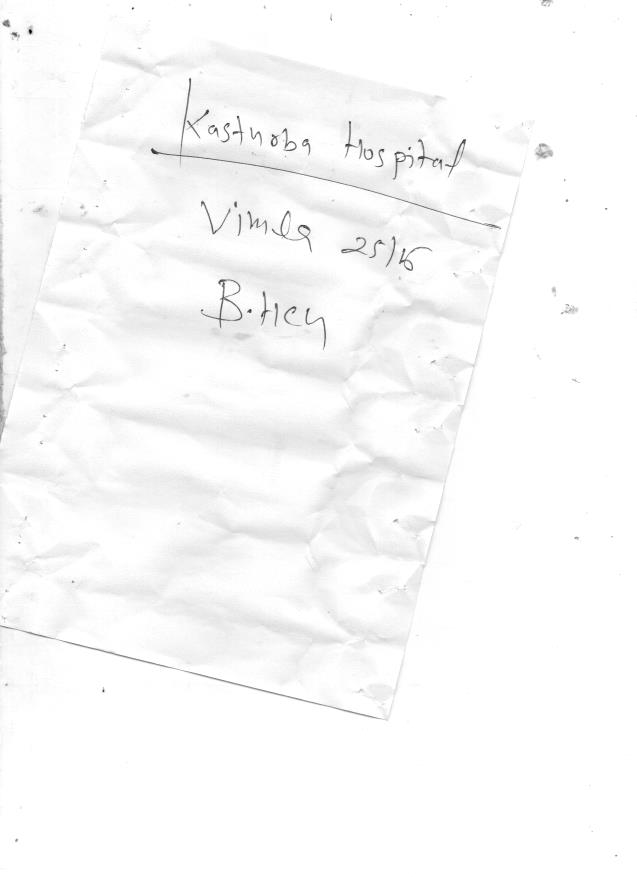 Kasturba Hospital
Vimla 25/6
B.HCG